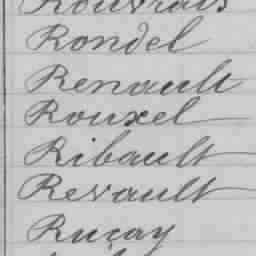 Rouvrais
Rondel
Renault
Rouxel
Ribault
Revault
Ruçay